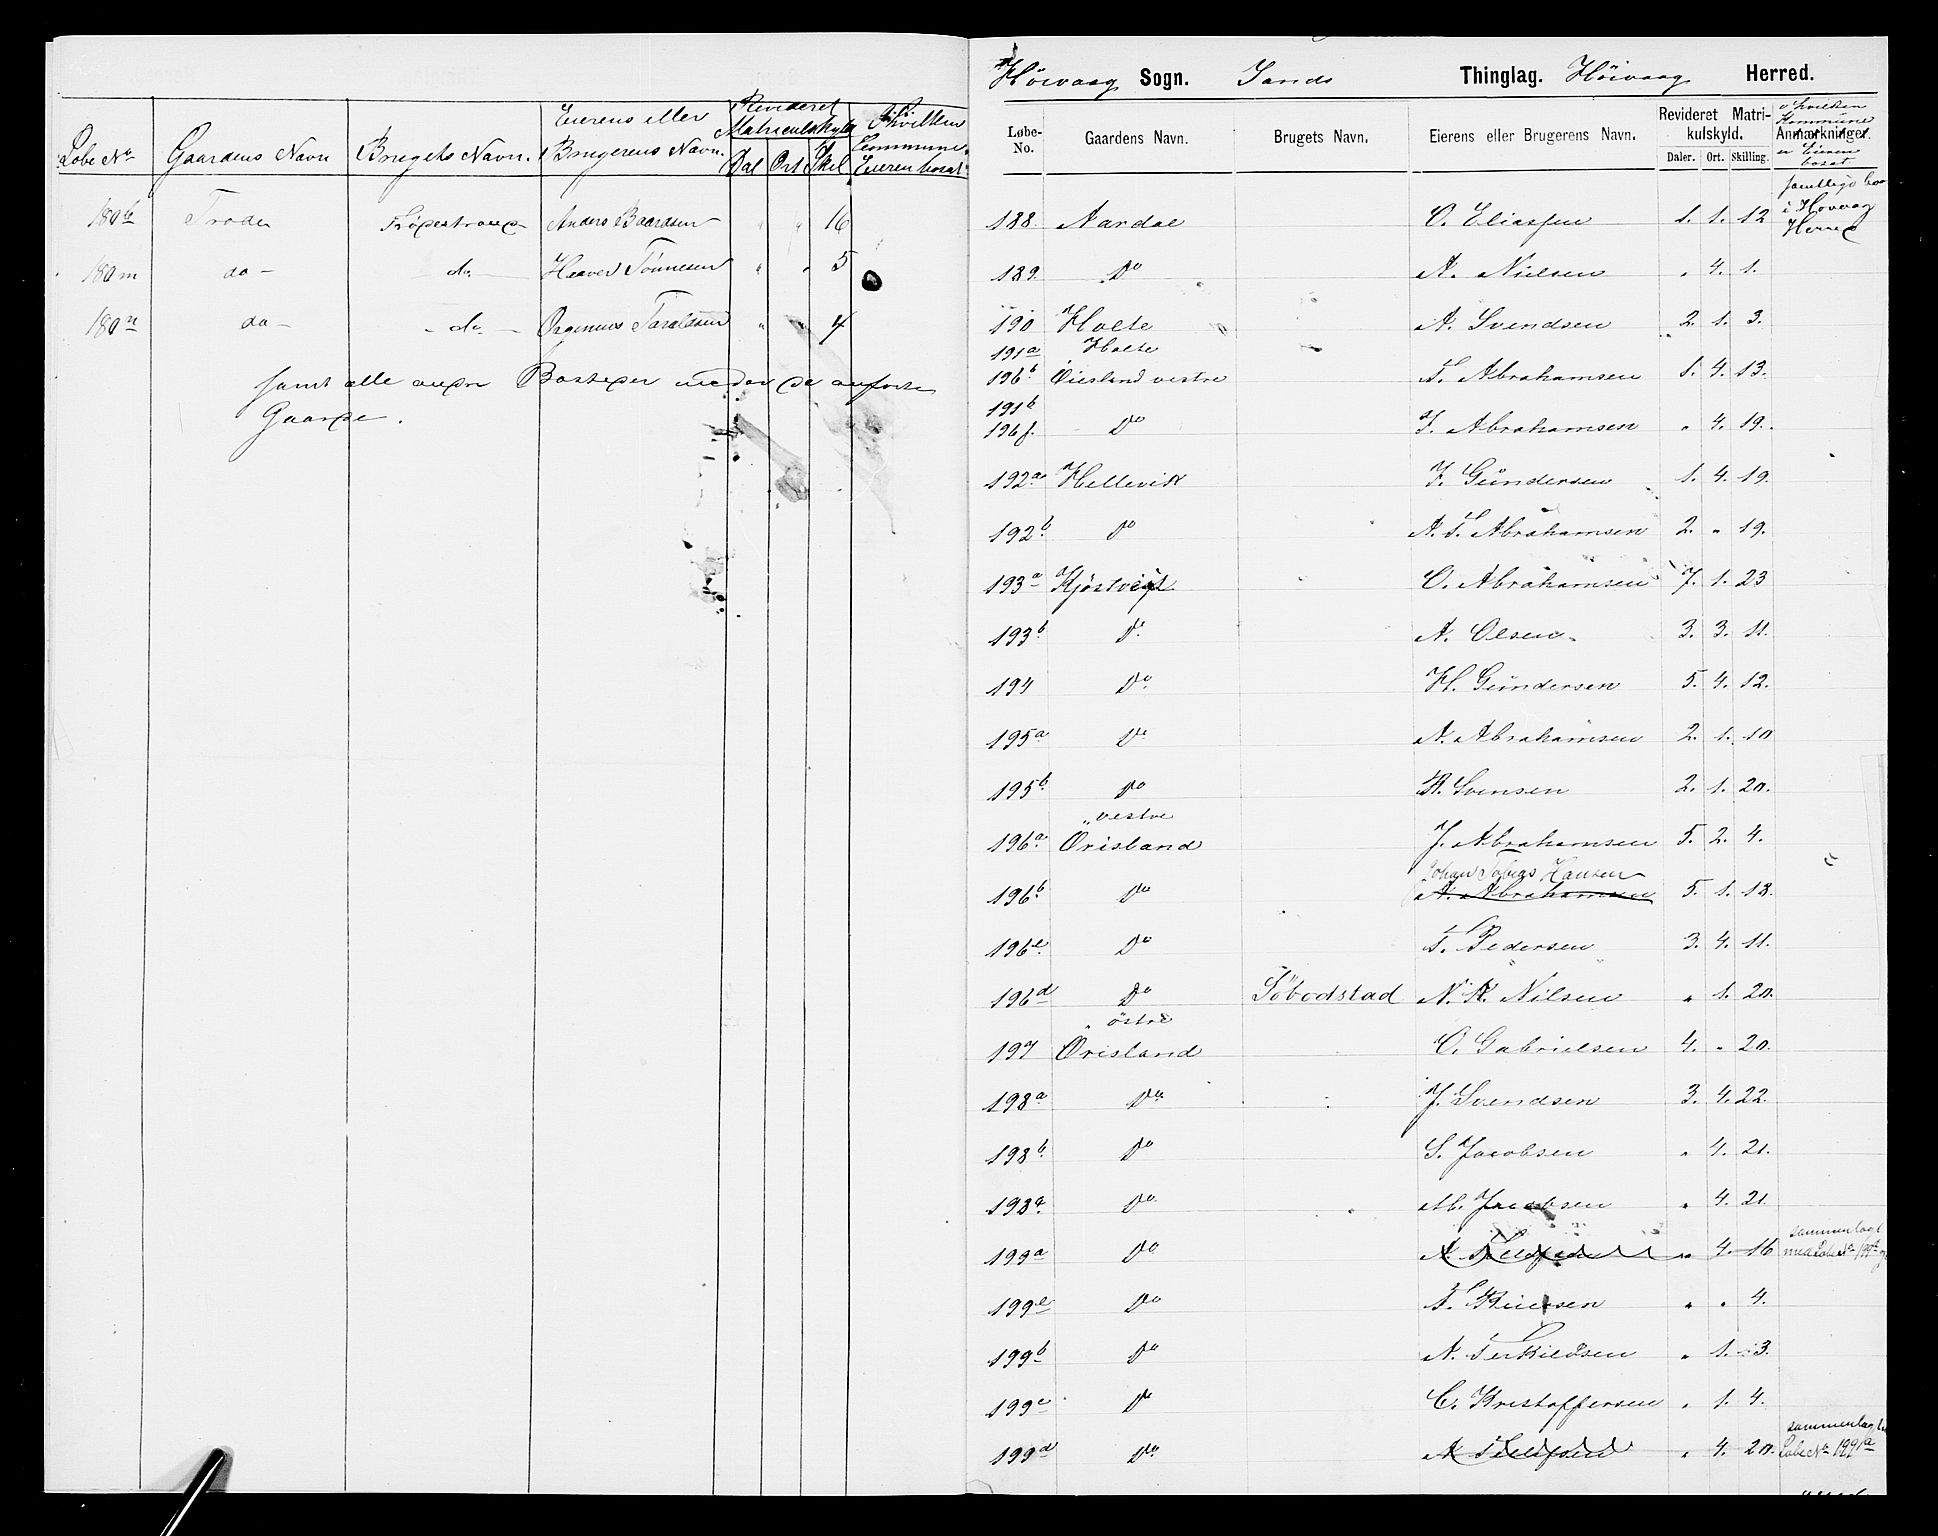 Løbe No Gaardens Navn Brugets Navn. Eierens eller Brugerens Navn. Revideret Matriculskyld Dal Ort Skil I hvilken Commune Eieren bosat
180 Trode Anders Baardsen " " 16
180m do - do - Tönnesen " " 5
180n do - - do - Taraldsen " " 4
samt alle andre Bosteder under de anførte
Gaarde.
Høivaag Sogn. Sands Thinglag. Høivaag Herred.
Løbe-No. Gaardens Navn. Brugets Navn. Eierens eller Brugerens Navn. Revideret Matrikulskyld. Daler. Ort. Skilling. Anmærkninger. i hvilken Kommune er Eieren bosat
188. Aardal O. Eliassen 1. 1. 12 samtlige bor i Høvaag Herred
189. Do A. Nielsen " 4. 1.
190 Holte A. Svendsen 2. 1. 3.
191a Holte
196b Øiesland vestre T. Abrahamsen 1. 4. 13.
191b
196f. Do T. Abrahamsen " 4. 19.
192a Hellevik J. Gundersen 1. 4. 19.
192b. Do A. T. Abrahamsen 2. " 19.
193a Kjøstvigt O. Abrahamsen 7. 1. 23
193b Do A. Olsen. 3. 3. 11.
194 Do H. Gundersen 5. 4. 12.
195a Do A. Abrahamsen 2. 1. 10
195b. Do Svensen 2. 1. 20.
" vestre
196a. Øiesland J. Abrahamsen 5. 2. 4.
Johan Tobias Hansen
196b. Do A. Abrahamsen 5. 1. 13.
196e. Do T. Pedersen 3. 4. 11.
196d Do Söbodstad N. K. Nilsen " 1. 20.
" östre
197 Øiesland O. Gabrielsen 4. " 20.
198a Do J. Svendsen 3. 4. 22.
198b. Do S. Jacobsen " 4. 21.
198c. Do M. Jacobsen " 4. 21
199a Do A. " 4. 16 sammenlagt med Løbe No 199d
199e Do T. " " 4.
199b Do N. Terkildsen " 1. 3.
199c Do C. Kristoffersen " 1. 4.
199d Do A " 4. 20. sammenlagt Løbe No 199a